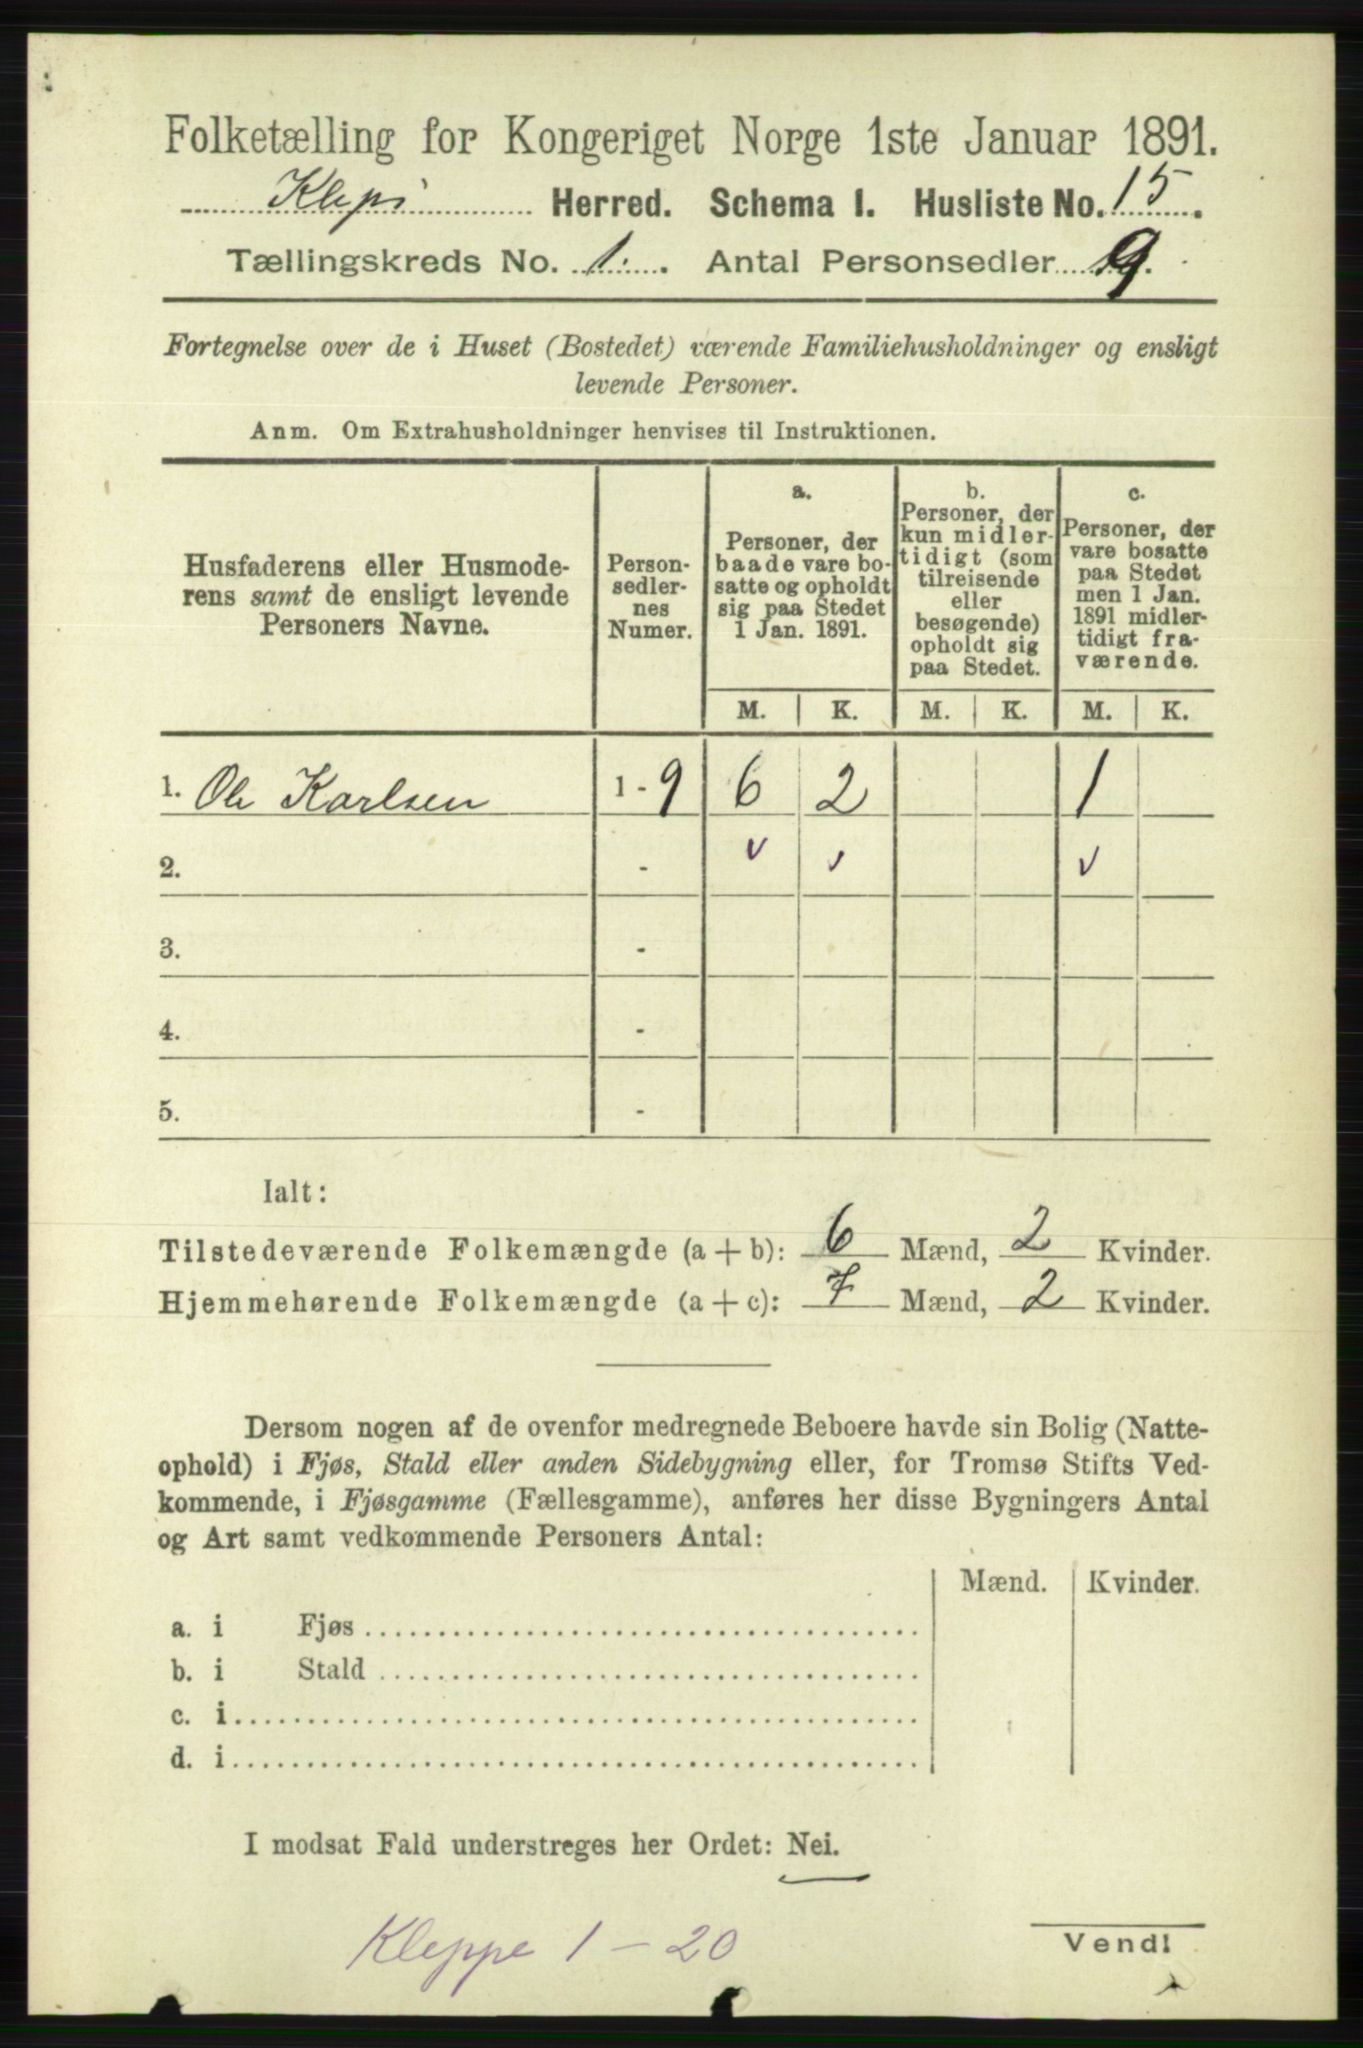 Folketælling for Kongeriget Norge 1ste Januar 1891.
Klepp Herred. Schema 1. Husliste No. 15.
Tællingskreds No. 1. Antal Personsedler 9.
Fortegnelse over de i Huset (Bostedet) værende Familiehusholdninger og ensligt
levende Personer.
Anm. Om Extrahusholdninger henvises til Instruktionen.
Husfaderens eller Husmode-
rens samt de ensligt levende
Personers Navne.
Person-
sedler-
nes
Numer.
a.
Personer, der
baade vare bo-
satte og opholdt
sig paa Stedet
1 Jan. 1891.
b.
Personer, der
kun midler-
tidigt (som
tilreisende
eller
besøgende)
opholdt sig
paa Stedet.
c.
Personer, der
vare bosatte
paa Stedet
men 1 Jan.
1891 midler-
tidigt fra-
værende.
M. K. M. K. M. K.
1. Ole Karlsen 1 - 9 6 2 1
2. - v v v
3. -
4. -
5. -
Ialt:
Tilstedeværende Folkemængde (a + b): 6 Mænd, 2 Kvinder.
Hjemmehørende Folkemængde (a + c): 7 Mænd, 2 Kvinder.
Dersom nogen af de ovenfor medregnede Beboere havde sin Bolig (Natte-
ophold) i Fjøs, Stald eller anden Sidebygning eller, for Tromsø Stifts Ved-
kommende, i Fjøsgamme (Fællesgamme), anføres her disse Bygningers Antal
og Art samt vedkommende Personers Antal:
Mænd. Kvinder.
a. i Fjøs
b. i Stald
c. i
d. i
I modsat Fald understreges her Ordet: Nei.
Kleppe 1 - 20
Vend!